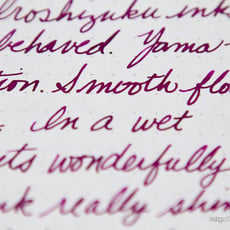 Iroshizuku ink
behaved. Yama-
tion. Smooth flo
In a wet
its wonderfully
ink really shin
http:/